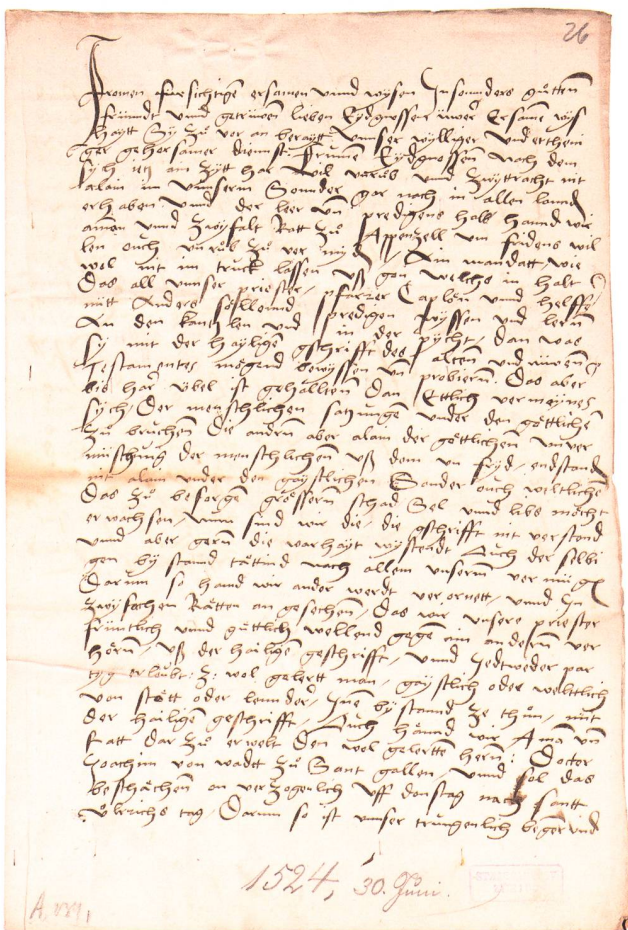 26
Fromen fursichtigen ersamen vnnd wysen Jnsonnders gůtten
fründt vnd getrüwen lieben Eydgnossen vwer Ersame wys
haytt Sy zů vor an beraytt vnnser wylliger vnd
ger gehorsamer dienst. Frumen Eydgnossen nach dem
sych ietz ain Zytt har vil vnrůb vnd Zwytracht nit
alain in vnnserm Sonder gar nach in allen lannd
erhaben vnnd der leer vnd predigens halb hannd wir
aman vnnd Zwyfalt Ratt zů Appenzell vm fridens wil
len ouch vnrůb zů ver Ain mandatt, wie
wol nit im truck lassen vß gon welchs in halt
Das all vnnser priester, pfarrer Caplen vnnd helffer
nitt Anders söllennd predigen wyssen vnd lern
An den kantzlen vnd in der bycht, Dan was
sy mit der hayligen gschrifft des alten vnd nüwen
Testamentes mögend bewyssen vn probieren. Das aber
bis har übel ist gehaltten Dan Ettlich vermeynes
sych, Der menschlichen satzungen vnder den göttlichen
zů bruchen Die andren aber alain der göttlichen vnver
müschung der menschlichen vß dem vn fryd, endstand
nit alain vnder den gaystlichen Sonder ouch weltlichen
Das zů besorgen grössern schad Sel vnnd libs möcht
erwachsen, Nun sind wir die, die gschrifft nit verstond
vnnd aber gern die warhayt wysstendt Auch der selbi
gen by stand tättind nach allem vnnserm vermügen
Darum so hand wir ander werdt verornett, vnnd Jn
Zwyfachen Rätten an gesechen, Das wir vnsere priester
früntlich vnnd güttlich wellend gegen ain andern ver
hören, vß der hailgen geschrifft, vnnd Jedtweder par
tyg erlaubt: z: wol gelertt man, gaystlich oder weltlich
von stett oder lennder, Jne by stannd ze thůn, mit
der hailigen geschrifft, Auch hannd wir Aman vnd
Ratt dar zů erwelt Den wol gelertten hern: Doctor
Joachim von wadt zů Sant gallen, vnnd sol das
beschächen an verzogenlich vff donstag nach santt
Ůlrichs tag, Darum so ist vnnser trungenlich beger vnd
1524, 30. Juni.